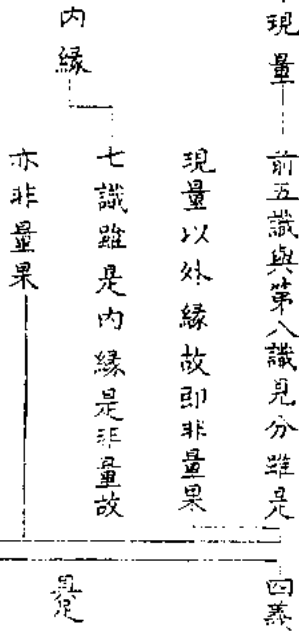 現量
前五識與第八識見分雖是
現量以外緣故即非量果
內緣
七識雖是內緣是非量故
亦非量果
四義
具足